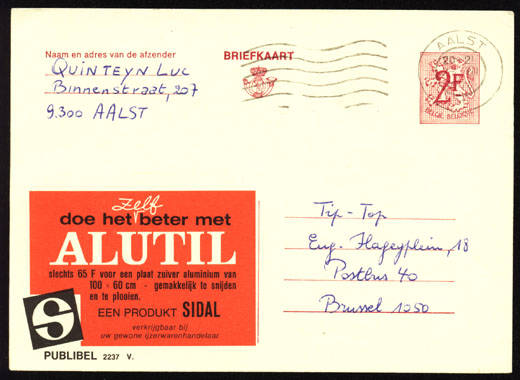 Naam en adres van de afzender
QUINTEYN LUC
Binnenstraat, 207
9.300 AALST
BRIEFKAART
AALST
20-2
2F
BELGIE-BELGIQUE
zelf
doe het beter met
ALUTIL
slechts 65 F voor een plaat zuiver aluminium van
100 x 60 cm - gemakkelijk te snijden
en te plooien.
EEN PRODUKT SIDAL
verkrijgbaar bij
uw gewone ijzerwarenhandelaar
S
PUBLIBEL 2237 V.
Tip-Top
Eug. Flageyplein, 18
Postbus 40
Brussel 1050